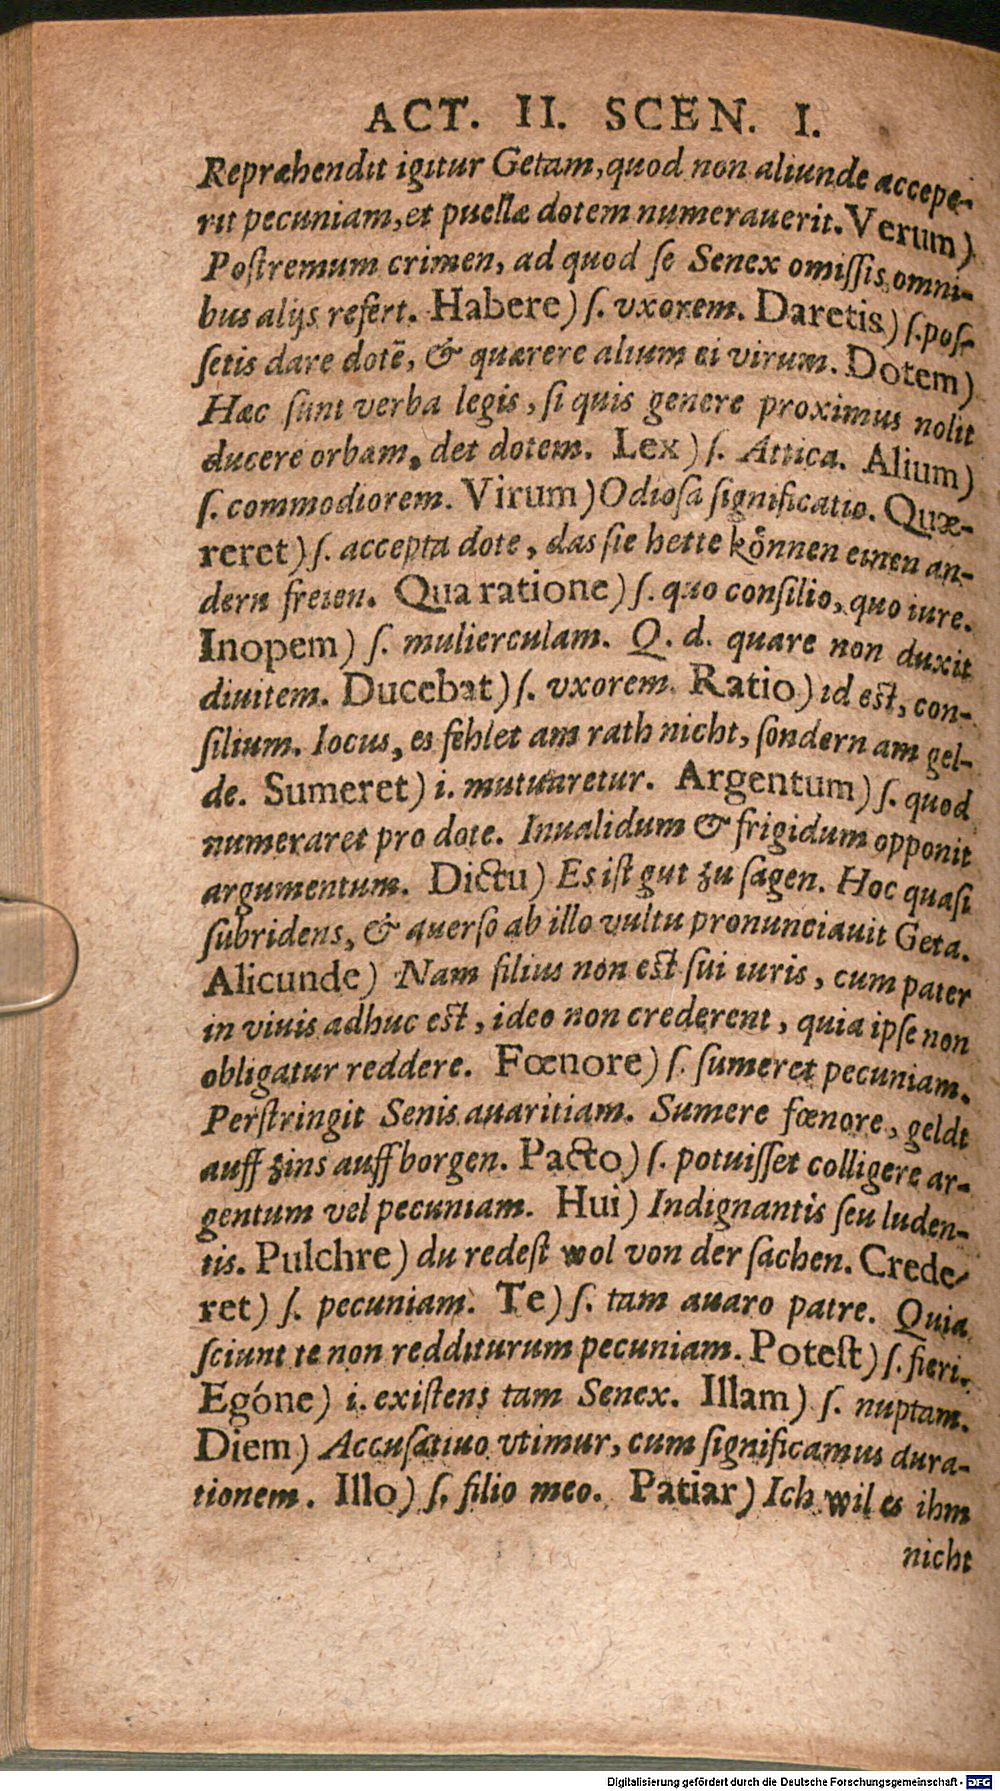 ACT. II. SCEN. I.
Repræhendit igitur Getam, quod non aliunde accepe-
rit pecuniam, et puellæ dotem numerauerit. Verum)
Poſtremum crimen, ad quod ſe Senex omiſſis omni-
bus alijs refert. Habere) ſ. vxorem. Daretis) ſ. poſ-
ſetis dare dotē, & quærere alium ei virum. Dotem)
Hæc ſunt verba legis, ſi quis genere proximus nolit
ducere orbam, det dotem. Lex) ſ. Attica. Alium)
ſ. commodiorem. Virum) Odioſa ſignificatio. Quæ-
reret) ſ. accepta dote, das ſie hette können einen an-
dern freien. Qua ratione) ſ. quo conſilio, quo iure.
Inopem) ſ. mulierculam. Q. d. quare non duxit
diuitem. Ducebat) ſ. vxorem. Ratio) id eſt, con-
ſilium. Iocus, es fehlet am rath nicht, ſondern am gel-
de. Sumeret) i. mutuaretur. Argentum) ſ. quod
numeraret pro dote. Inualidum & frigidum opponit
argumentum. Dictu) Es iſt gut zu ſagen. Hoc quaſi
ſubridens, & auerſo ab illo vultu pronunciauit Geta.
Alicunde) Nam filius non eſt ſui iuris, cum pater
in viuis adhuc eſt, ideo non crederent, quia ipſe non
obligatur reddere. Fœnore) ſ. ſumeret pecuniam.
Perſtringit Senis auaritiam. Sumere fœnore, geldt
auff zins auff borgen. Pacto) ſ. potuiſſet colligere ar-
gentum vel pecuniam. Hui) Indignantis ſeu luden-
tis. Pulchre) du redeſt wol von der ſachen. Crede-
ret) ſ. pecuniam. Te) ſ. tam auaro patre. Quia
ſciunt te non redditurum pecuniam. Poteſt) ſ. fieri.
Egóne) i. exiſtens tam Senex. Illam) ſ. nuptam.
Diem) Accuſatiuo vtimur, cum ſignificamus dura-
tionem. Illo) ſ. filio meo. Patiar) Ich wil es ihm
nicht
Digitalisierung gefördert durch die Deutsche Forschungsgemeinschaft - DFG